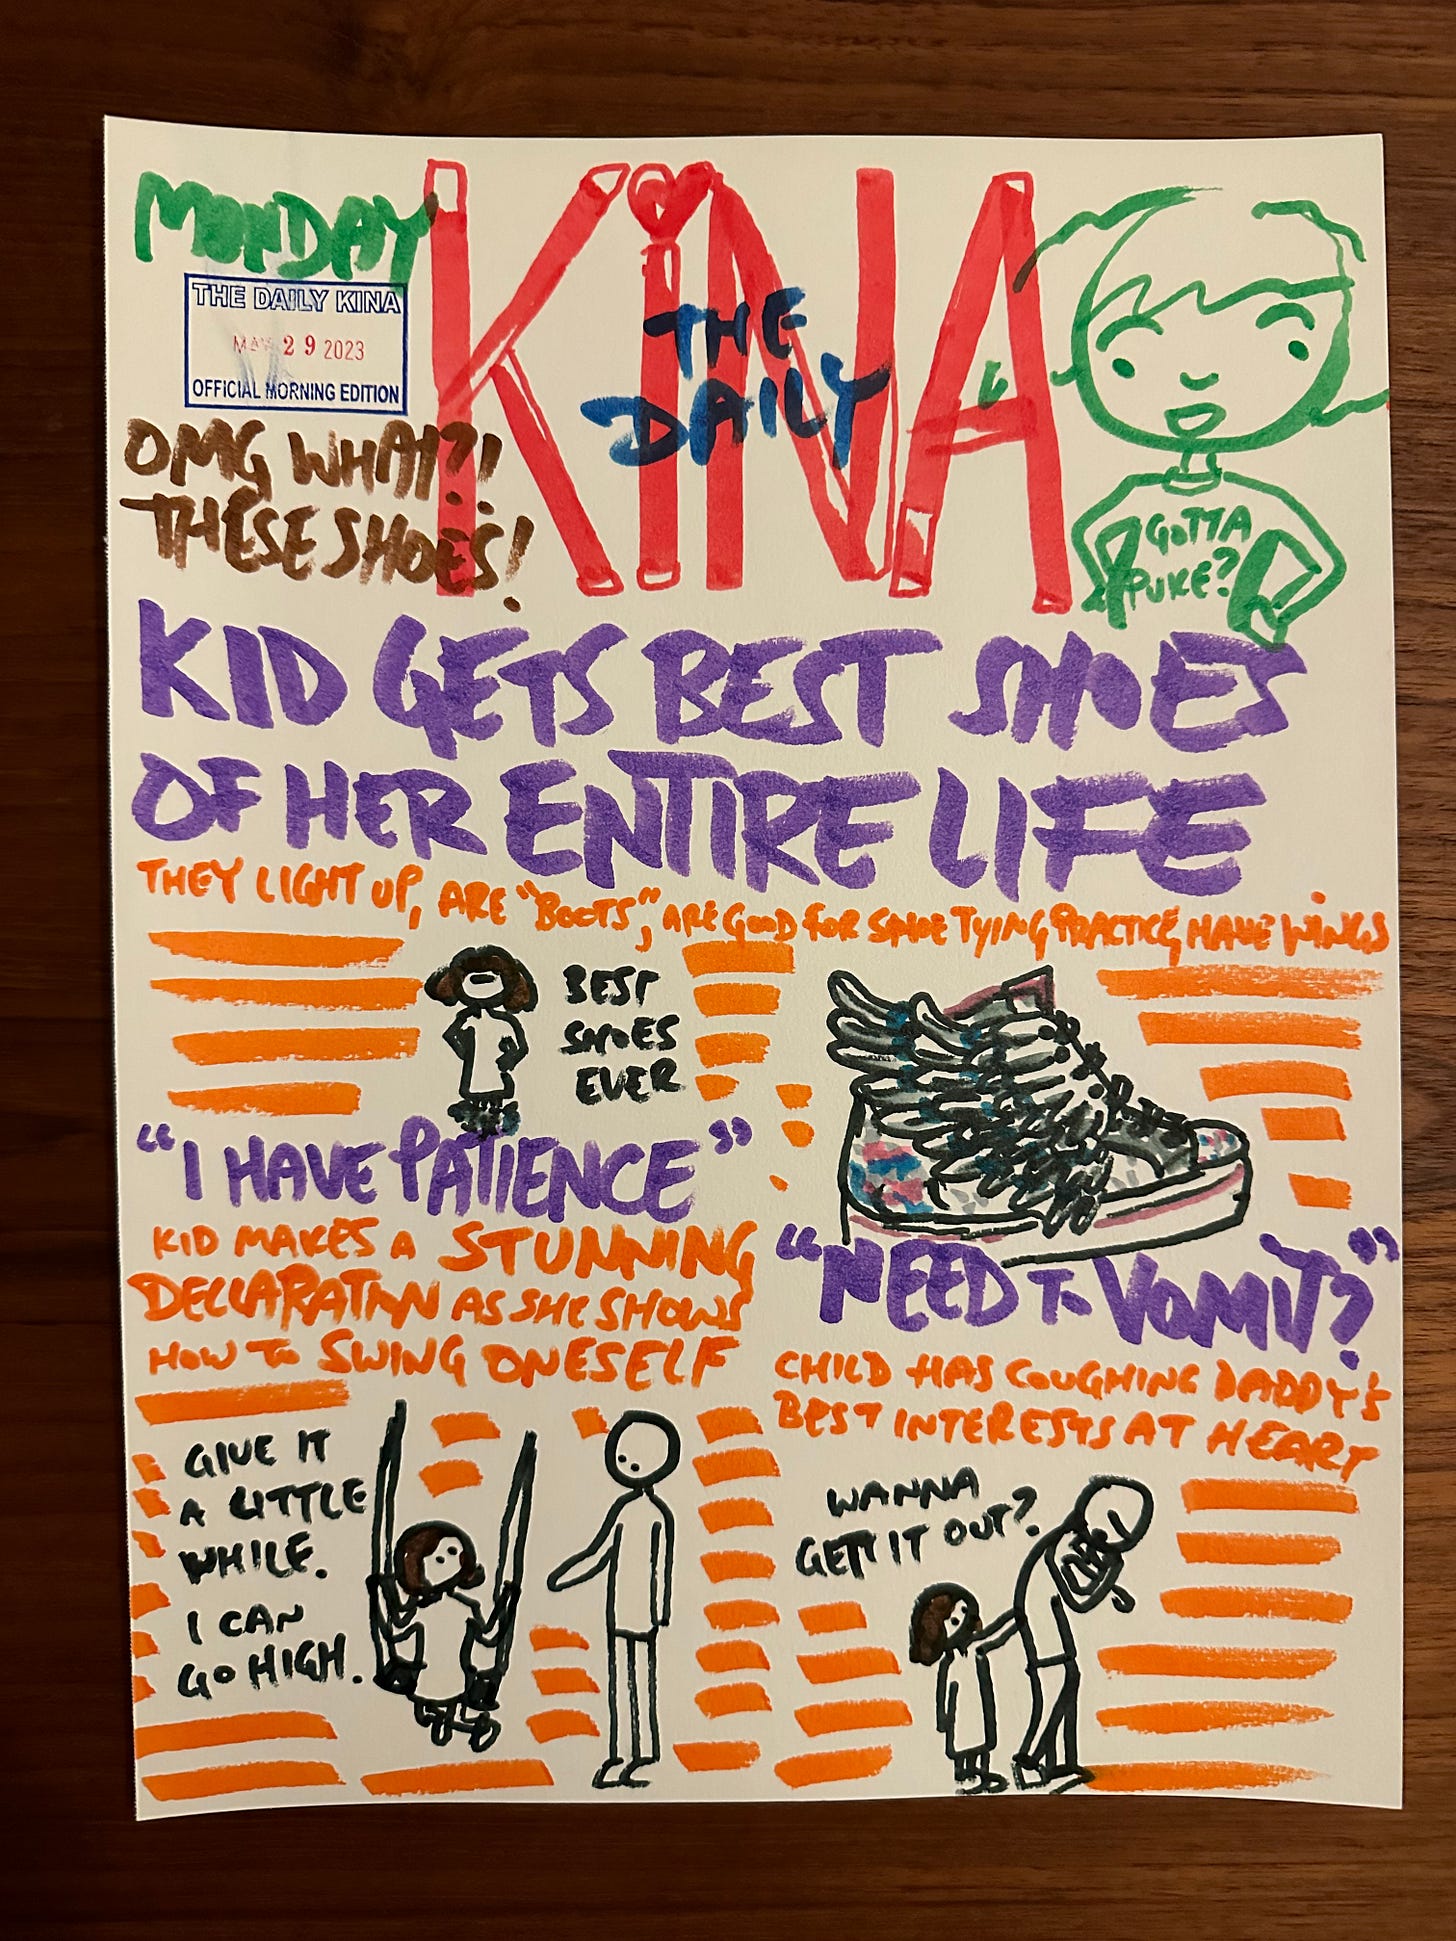 MONDAY
THE DAILY KINA
MAY 29 2023
OFFICIAL MORNING EDITION
KiNA
THE
DAILY
OMG WHAT?!
THESE SHOES!
GOTTA
PUKE?
KID GETS BEST SHOES
OF HER ENTIRE LIFE
THEY LIGHT UP, ARE "BOOTS", ARE GOOD FOR SHOE TYING PRACTICE, HAVE WINGS
BEST
SHOES
EVER
"I HAVE PATIENCE"
KID MAKES A STUNNING
DECLARATION AS SHE SHOWS
HOW TO SWING ONESELF
GIVE IT
A LITTLE
WHILE.
I CAN
GO HIGH.
"NEED TO VOMIT?"
CHILD HAS COUGHING DADDY'S
BEST INTERESTS AT HEART
WANNA
GET IT OUT?